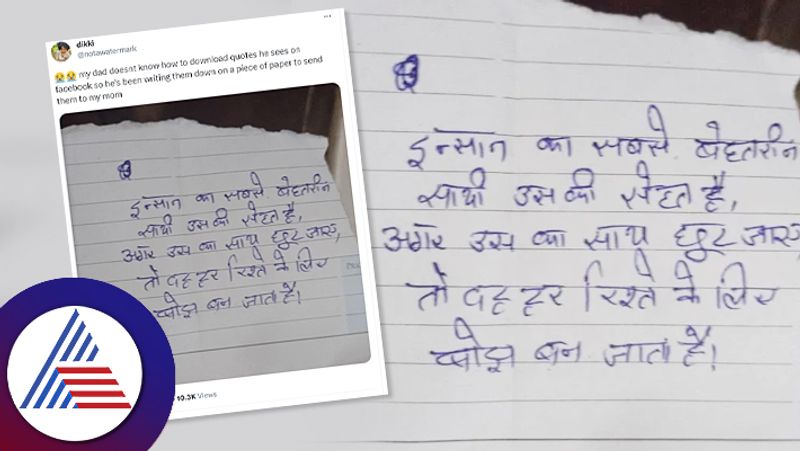 dikki
@notawatermark
😭😭 my dad doesnt know how to download quotes he sees on
facebook so he's been writing them down on a piece of paper to send
them to my mom
इन्सान का सबसे बेहतरीन
साथी उस की सेहत है,
अगर उस का साथ छुट जाए,
तो वह हर रिश्ते के लिए
बोझ बन जाता है।
10.3K Views
इन्सान का सबसे बेहतरीन
साथी उस की सेहत है,
अगर उस का साथ छुट जाए,
तो वह हर रिश्ते के लिए
बोझ बन जाता है।